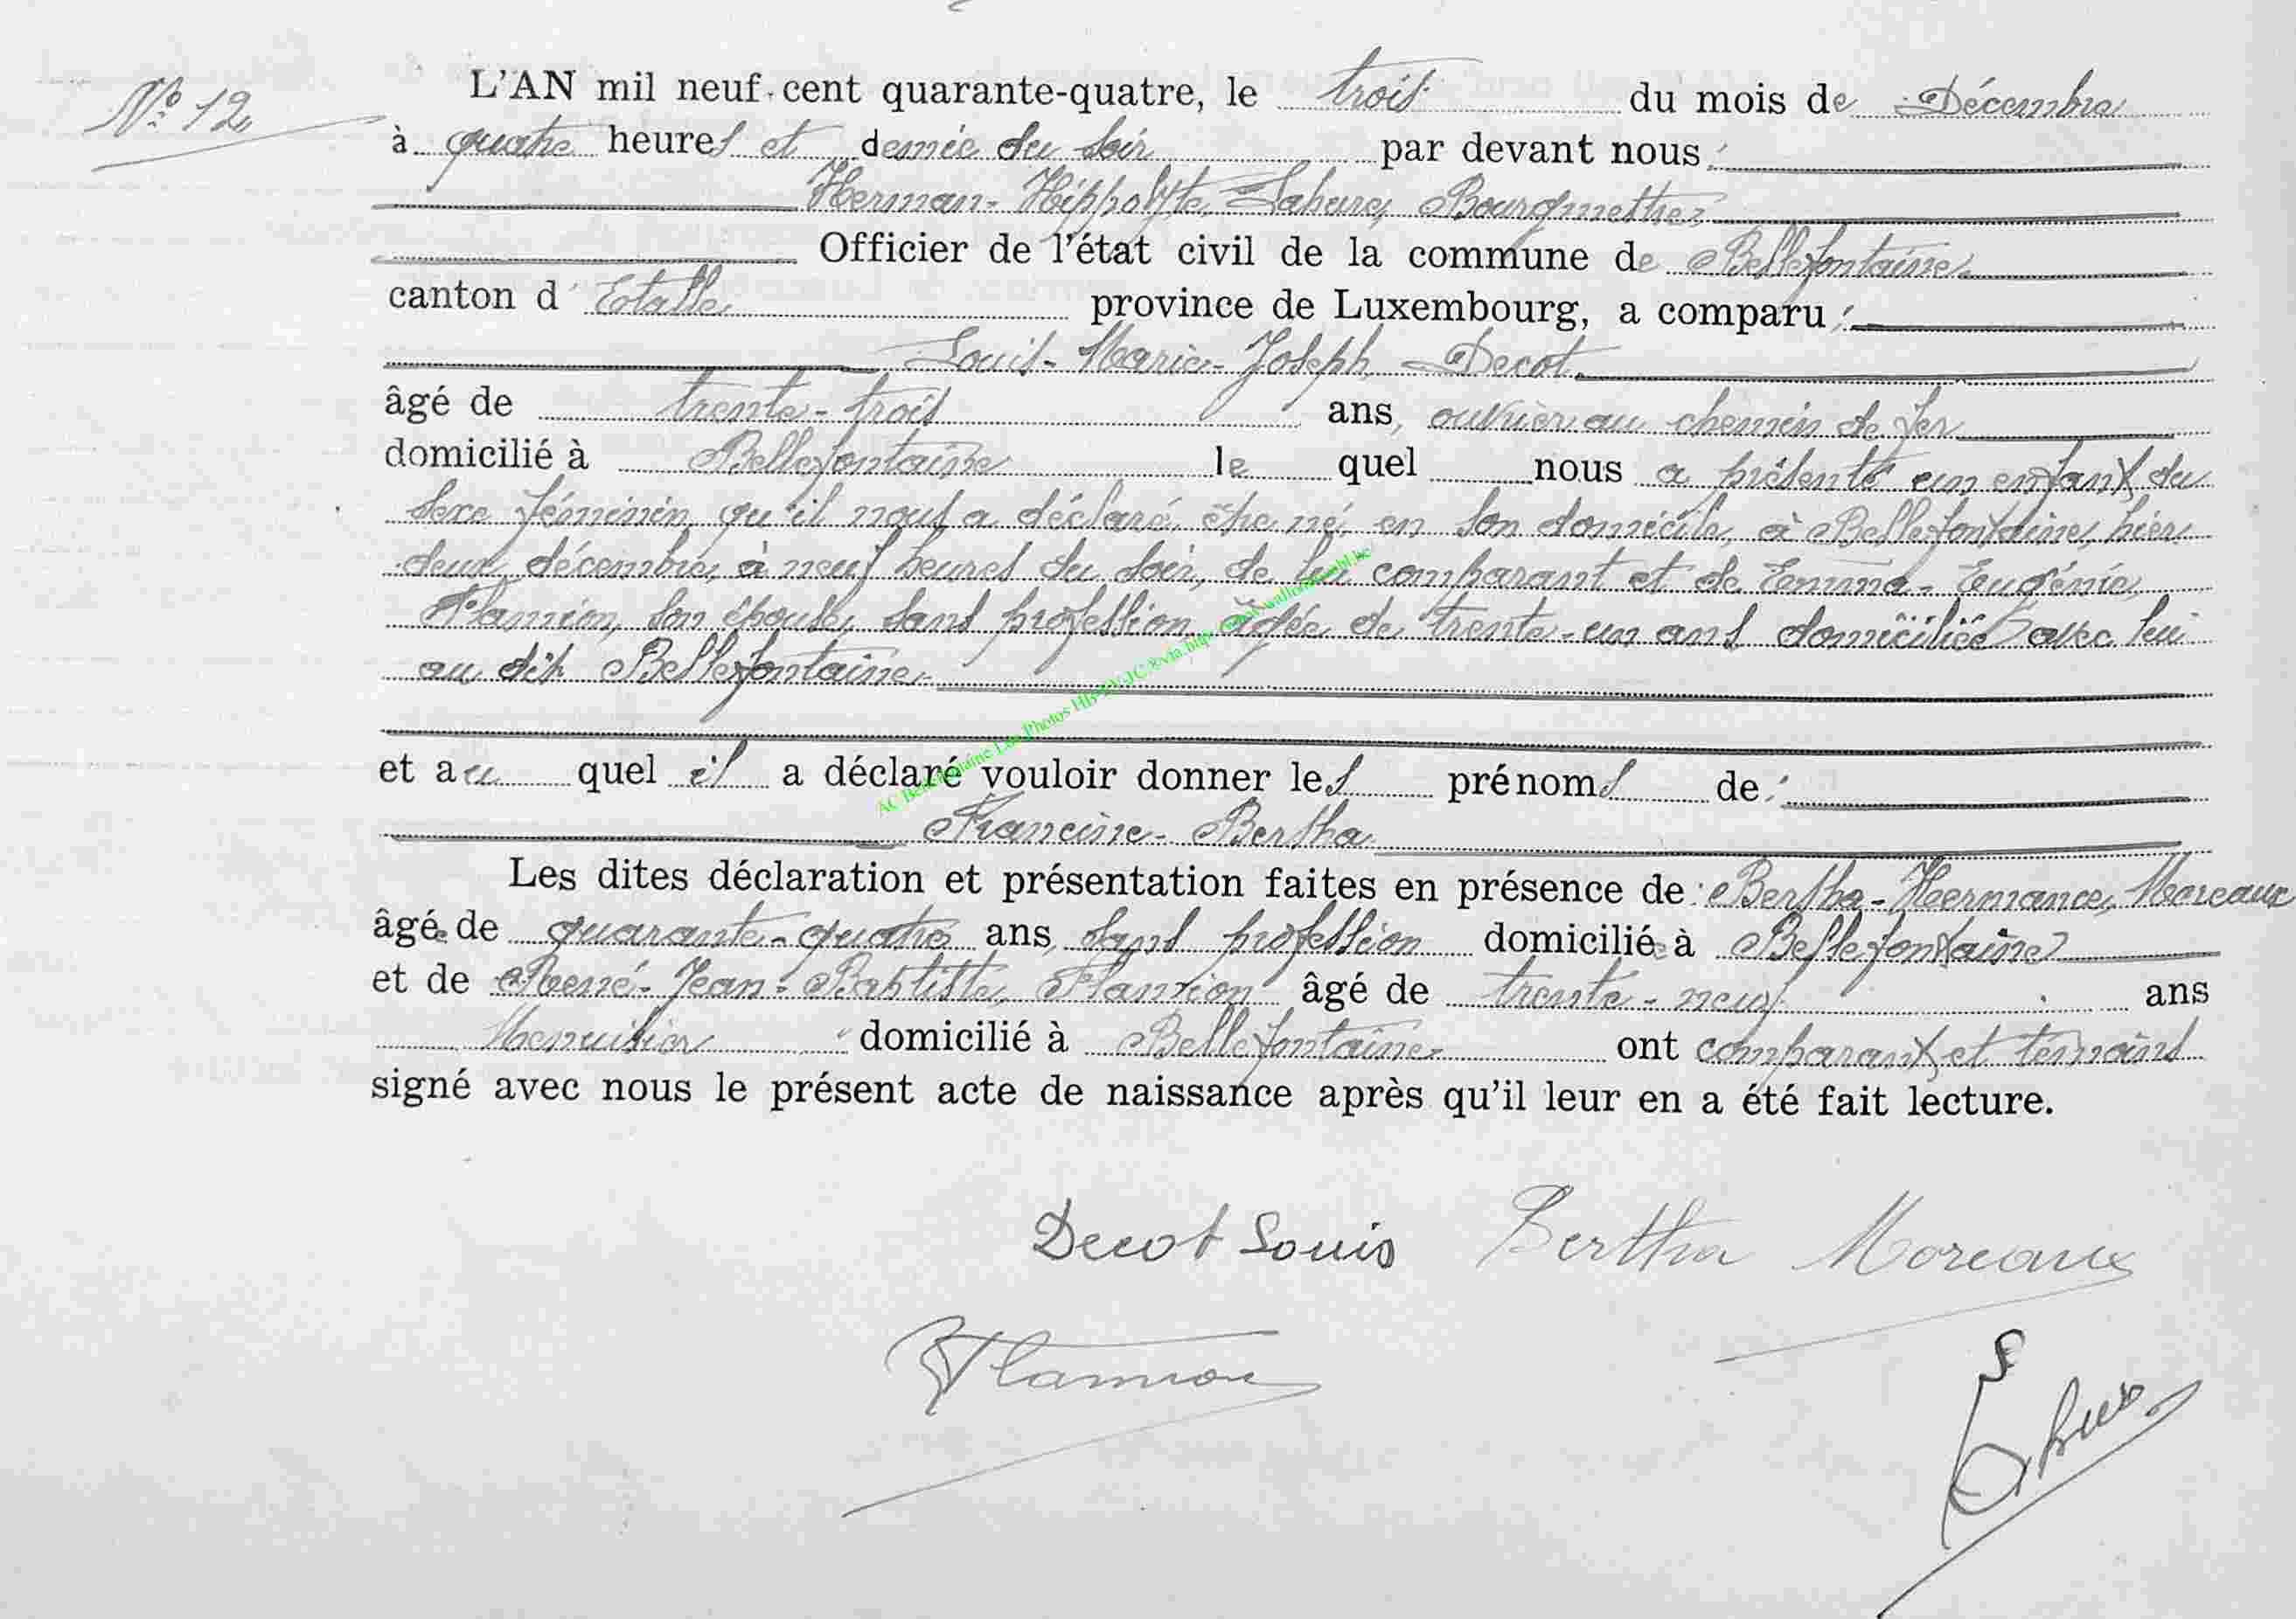 N° 12
L'AN mil neuf cent quarante-quatre, le trois du mois de Décembre
à quatre heures et demie du soir par devant nous :
Herman-Hippolyte, Lahure, Bourgmestre,
Officier de l'état civil de la commune de Bellefontaine,
canton d'Etalle, province de Luxembourg, a comparu :
Louis-Marie-Joseph Decot,
âgé de trente-trois ans, ouvrier au chemin de fer
domicilié à Bellefontaine lequel nous a présenté un enfant du
sexe féminin, qu'il nous a déclaré être né, en son domicile, à Bellefontaine, hier
deux décembre, à neuf heures du soir, de lui comparant et de Emma-Eugénie,
Flamion, son épouse, sans profession, âgée de trente-un ans domiciliée avec lui
au dit Bellefontaine.
et au quel il a déclaré vouloir donner les prénoms de :
Francine-Bertha
Les dites déclaration et présentation faites en présence de : Bertha-Hermance, Moreaux
âgée de quarante-quatre ans, sans profession domiciliée à Bellefontaine
et de René-Jean-Baptiste, Flamion âgé de trente-neuf ans
Menuisier domicilié à Bellefontaine ont comparant et témoins
signé avec nous le présent acte de naissance après qu'il leur en a été fait lecture.
Decot Louis Bertha Moreaux
RFlamion
AC Bellefontaine Lux Photos